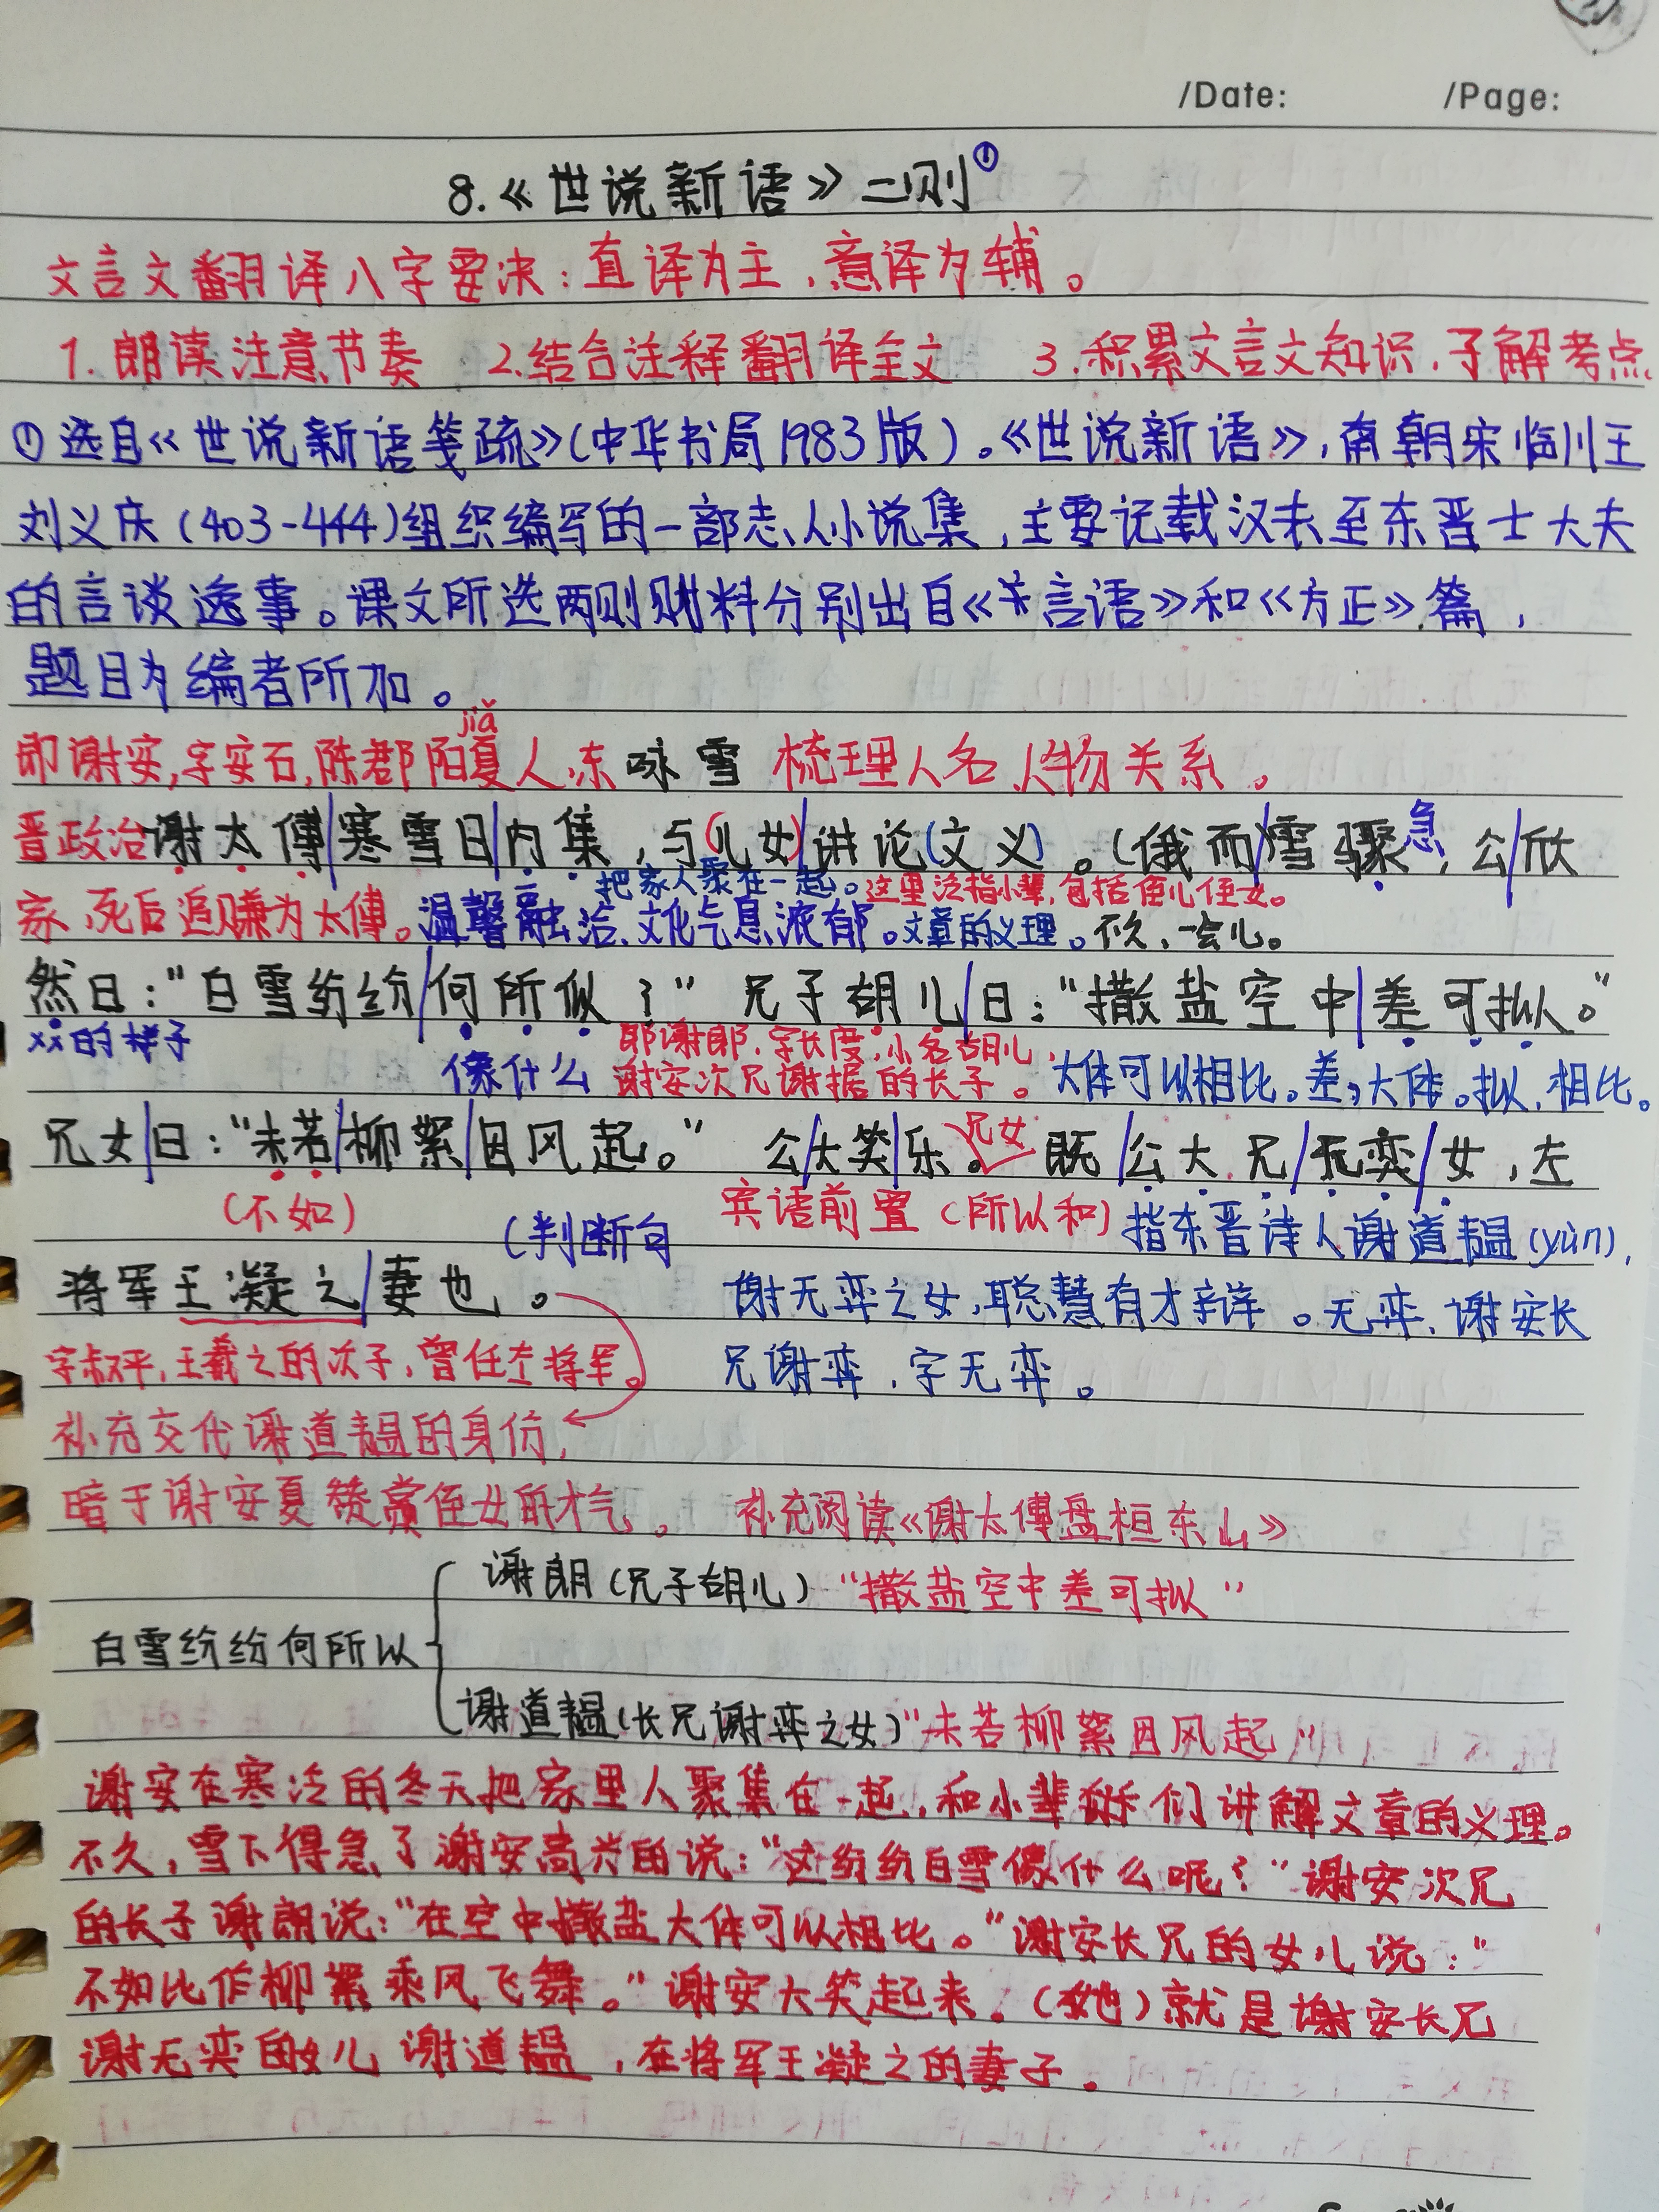 /Date: /Page:
8.《世说新语》二则①
文言文翻译八字要决:直译为主,意译为辅。
1.朗读注意节奏 2.结合注释翻译全文 3.积累文言文知识,了解考点
①选自《世说新语笺疏》(中华书局1983版)。《世说新语》,南朝宋临川王
刘义庆(403-444)组织编写的一部志人小说集,主要记载汉末至东晋士大夫
的言谈逸事。课文所选两则材料分别出自《言语》和《方正》篇,
题目为编者所加。
jiǎ
即谢安,字安石,陈郡阳夏人,东 咏雪 梳理人名人物关系。
晋政治 谢太傅/寒雪日/内集,与(儿女)/讲论(文义)。(俄而/雪骤急,公/欣
把家人聚在一起。这里泛指小辈,包括侄儿侄女。
家,死后追赠为太傅。温馨融洽、文化气息浓郁。文章的义理。不久,一会儿。
然曰:"白雪纷纷/何所似?" 兄子胡儿/曰:"撒盐空中/差可拟。"
xx的样子 即谢朗,字长度,小名胡儿,
像什么 谢安次兄谢据的长子。 大体可以相比。差,大体。拟,相比。
兄女/曰:"未若/柳絮/因风起。" 公/大笑/乐。兄女 既/公大兄/无奕/女,左
(不如) (判断句 宾语前置(所以和) 指东晋诗人谢道韫(yùn),
将军王凝之/妻也。 谢无奕之女,聪慧有才辩。无奕,谢安长
字叔平,王羲之的次子,曾任左将军。 兄谢奕,字无奕。
补充交代谢道韫的身份,
暗于谢安夏赞赏侄女的才气。 补充阅读《谢太傅盘桓东山》
谢朗(兄子胡儿)"撒盐空中差可拟"
白雪纷纷何所以
谢道韫(长兄谢奕之女)"未若柳絮因风起"
谢安在寒冷的冬天把家里人聚集在一起,和小辈们讲解文章的义理。
不久,雪下得急了谢安高兴的说:"这纷纷白雪像什么呢?"谢安次兄
的长子谢朗说:"在空中撒盐大体可以相比。"谢安长兄的女儿说:"
不如比作柳絮乘风飞舞。"谢安大笑起来。(她)就是谢安长兄
谢无奕的女儿 谢道韫,左将军王凝之的妻子。